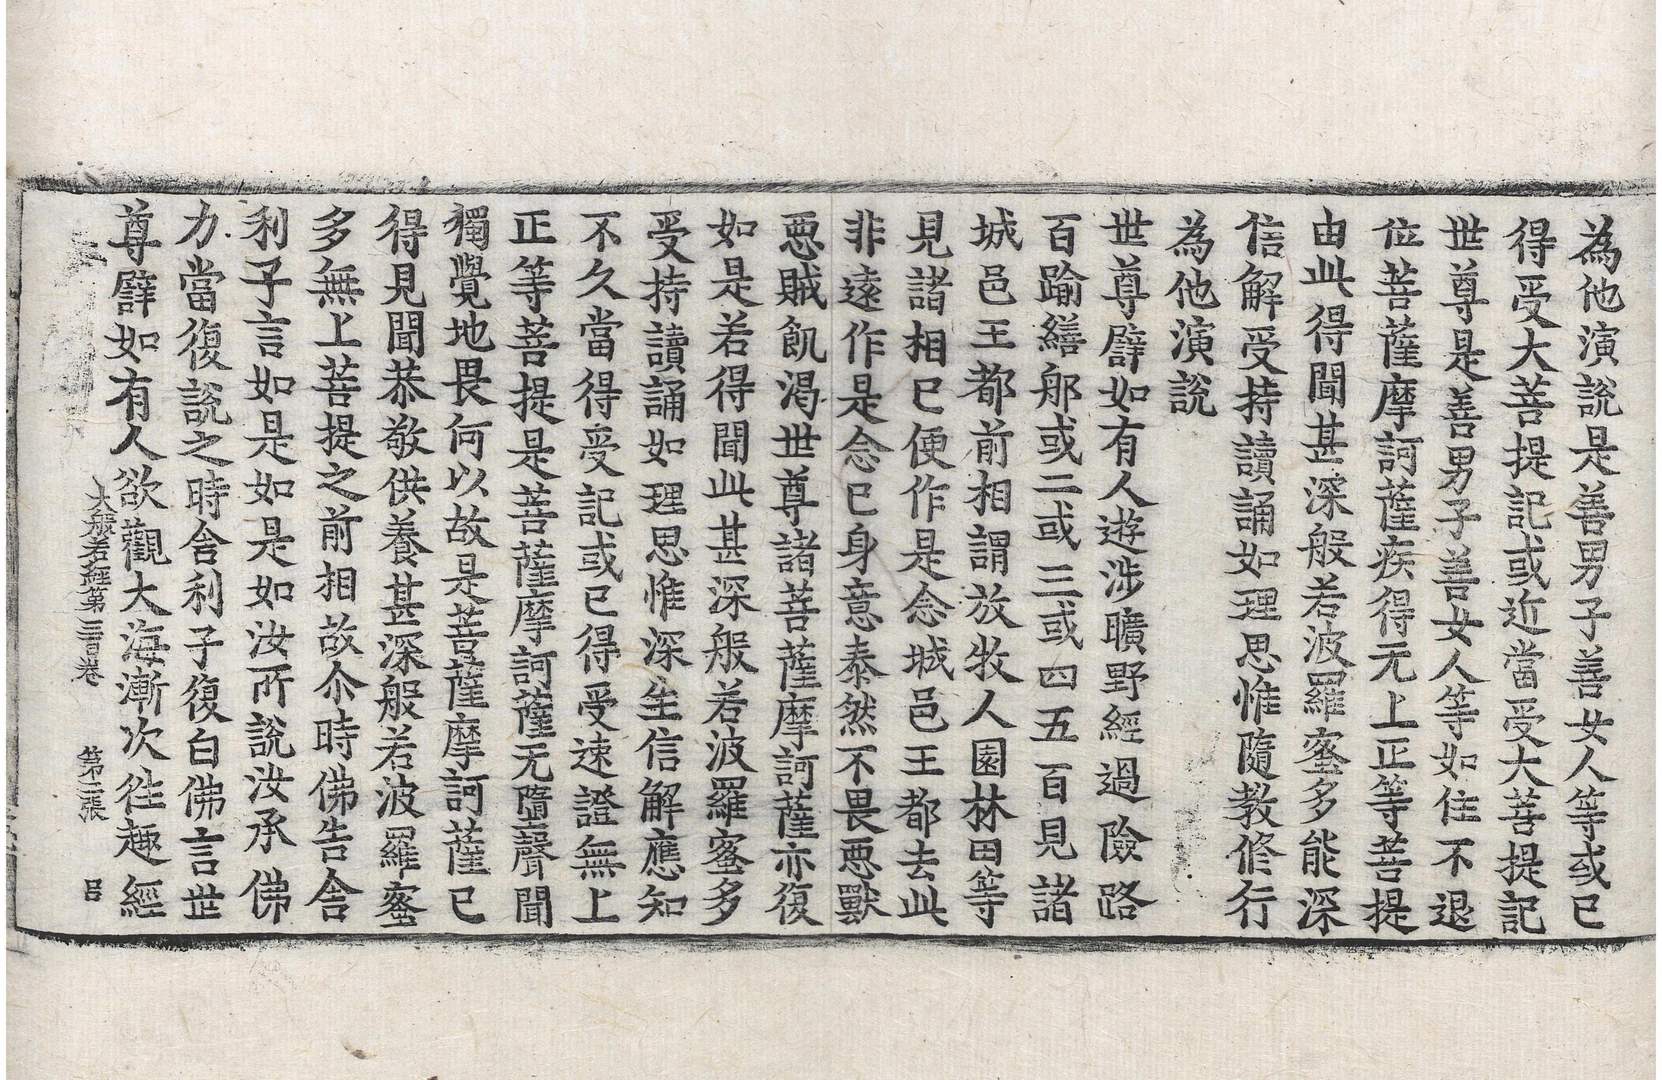 為他演說是善男子善女人等或已
得受大菩提記或近當受大菩提記
世尊是善男子善女人等如住不退
位菩薩摩訶薩疾得无上正等菩提
由此得聞甚深般若波羅蜜多能深
信解受持讀誦如理思惟隨教修行
為他演說
世尊譬如有人遊涉曠野經過險路
百踰繕那或二或三或四五百見諸
城邑王都前相謂放牧人園林田等
見諸相已便作是念城邑王都去此
非遠作是念已身意泰然不畏惡獸
惡賊飢渴世尊諸菩薩摩訶薩亦復
如是若得聞此甚深般若波羅蜜多
受持讀誦如理思惟深生信解應知
不久當得受記或已得受速證無上
正等菩提是菩薩摩訶薩无墮聲聞
獨覺地畏何以故是菩薩摩訶薩已
得見聞恭敬供養甚深般若波羅蜜
多無上菩提之前相故尒時佛告舍
利子言如是如是如汝所說汝承佛
力當復說之時舍利子復白佛言世
尊譬如有人欲觀大海漸次往趣經
大般若經第三百卷 第二張 呂